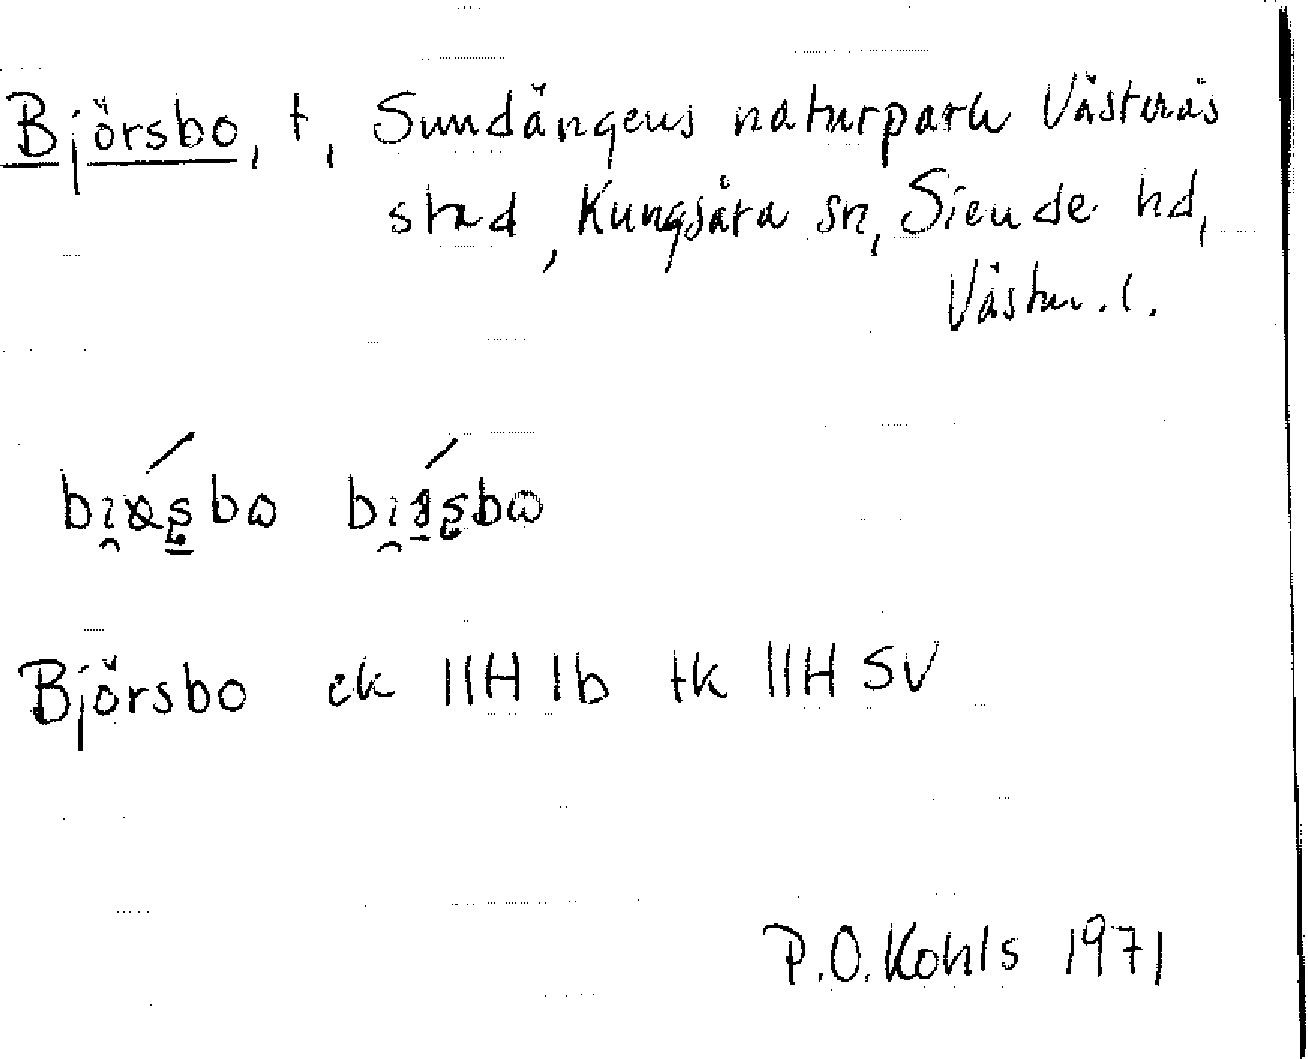 Björsbo, t, Sundängens naturpark Västerås
stad, Kungsåra sn, Siende hd,
Västm. l.
Björsbo ek 11H 1b tk 11H SV
P.O. Kohls 1971